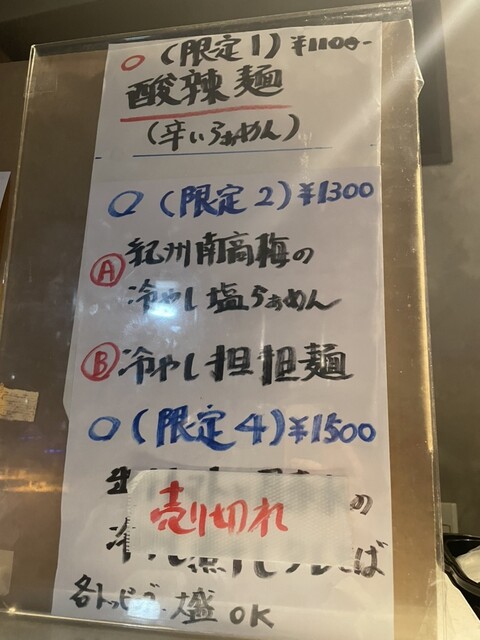 ○ (限定1) ¥1100-
酸辣麺
(辛いらぁめん)
○ (限定2) ¥1300
Ⓐ 紀州南高梅の
冷やし塩らぁめん
Ⓑ 冷やし担担麺
○ (限定4) ¥1500
の
売り切れ
冷 ば
各トッピング 大盛 OK